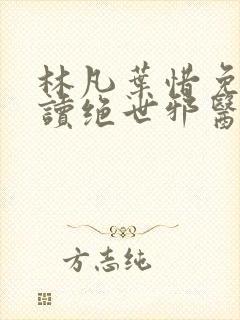 林凡葉惜免
讀绝世邪醫
方志纯